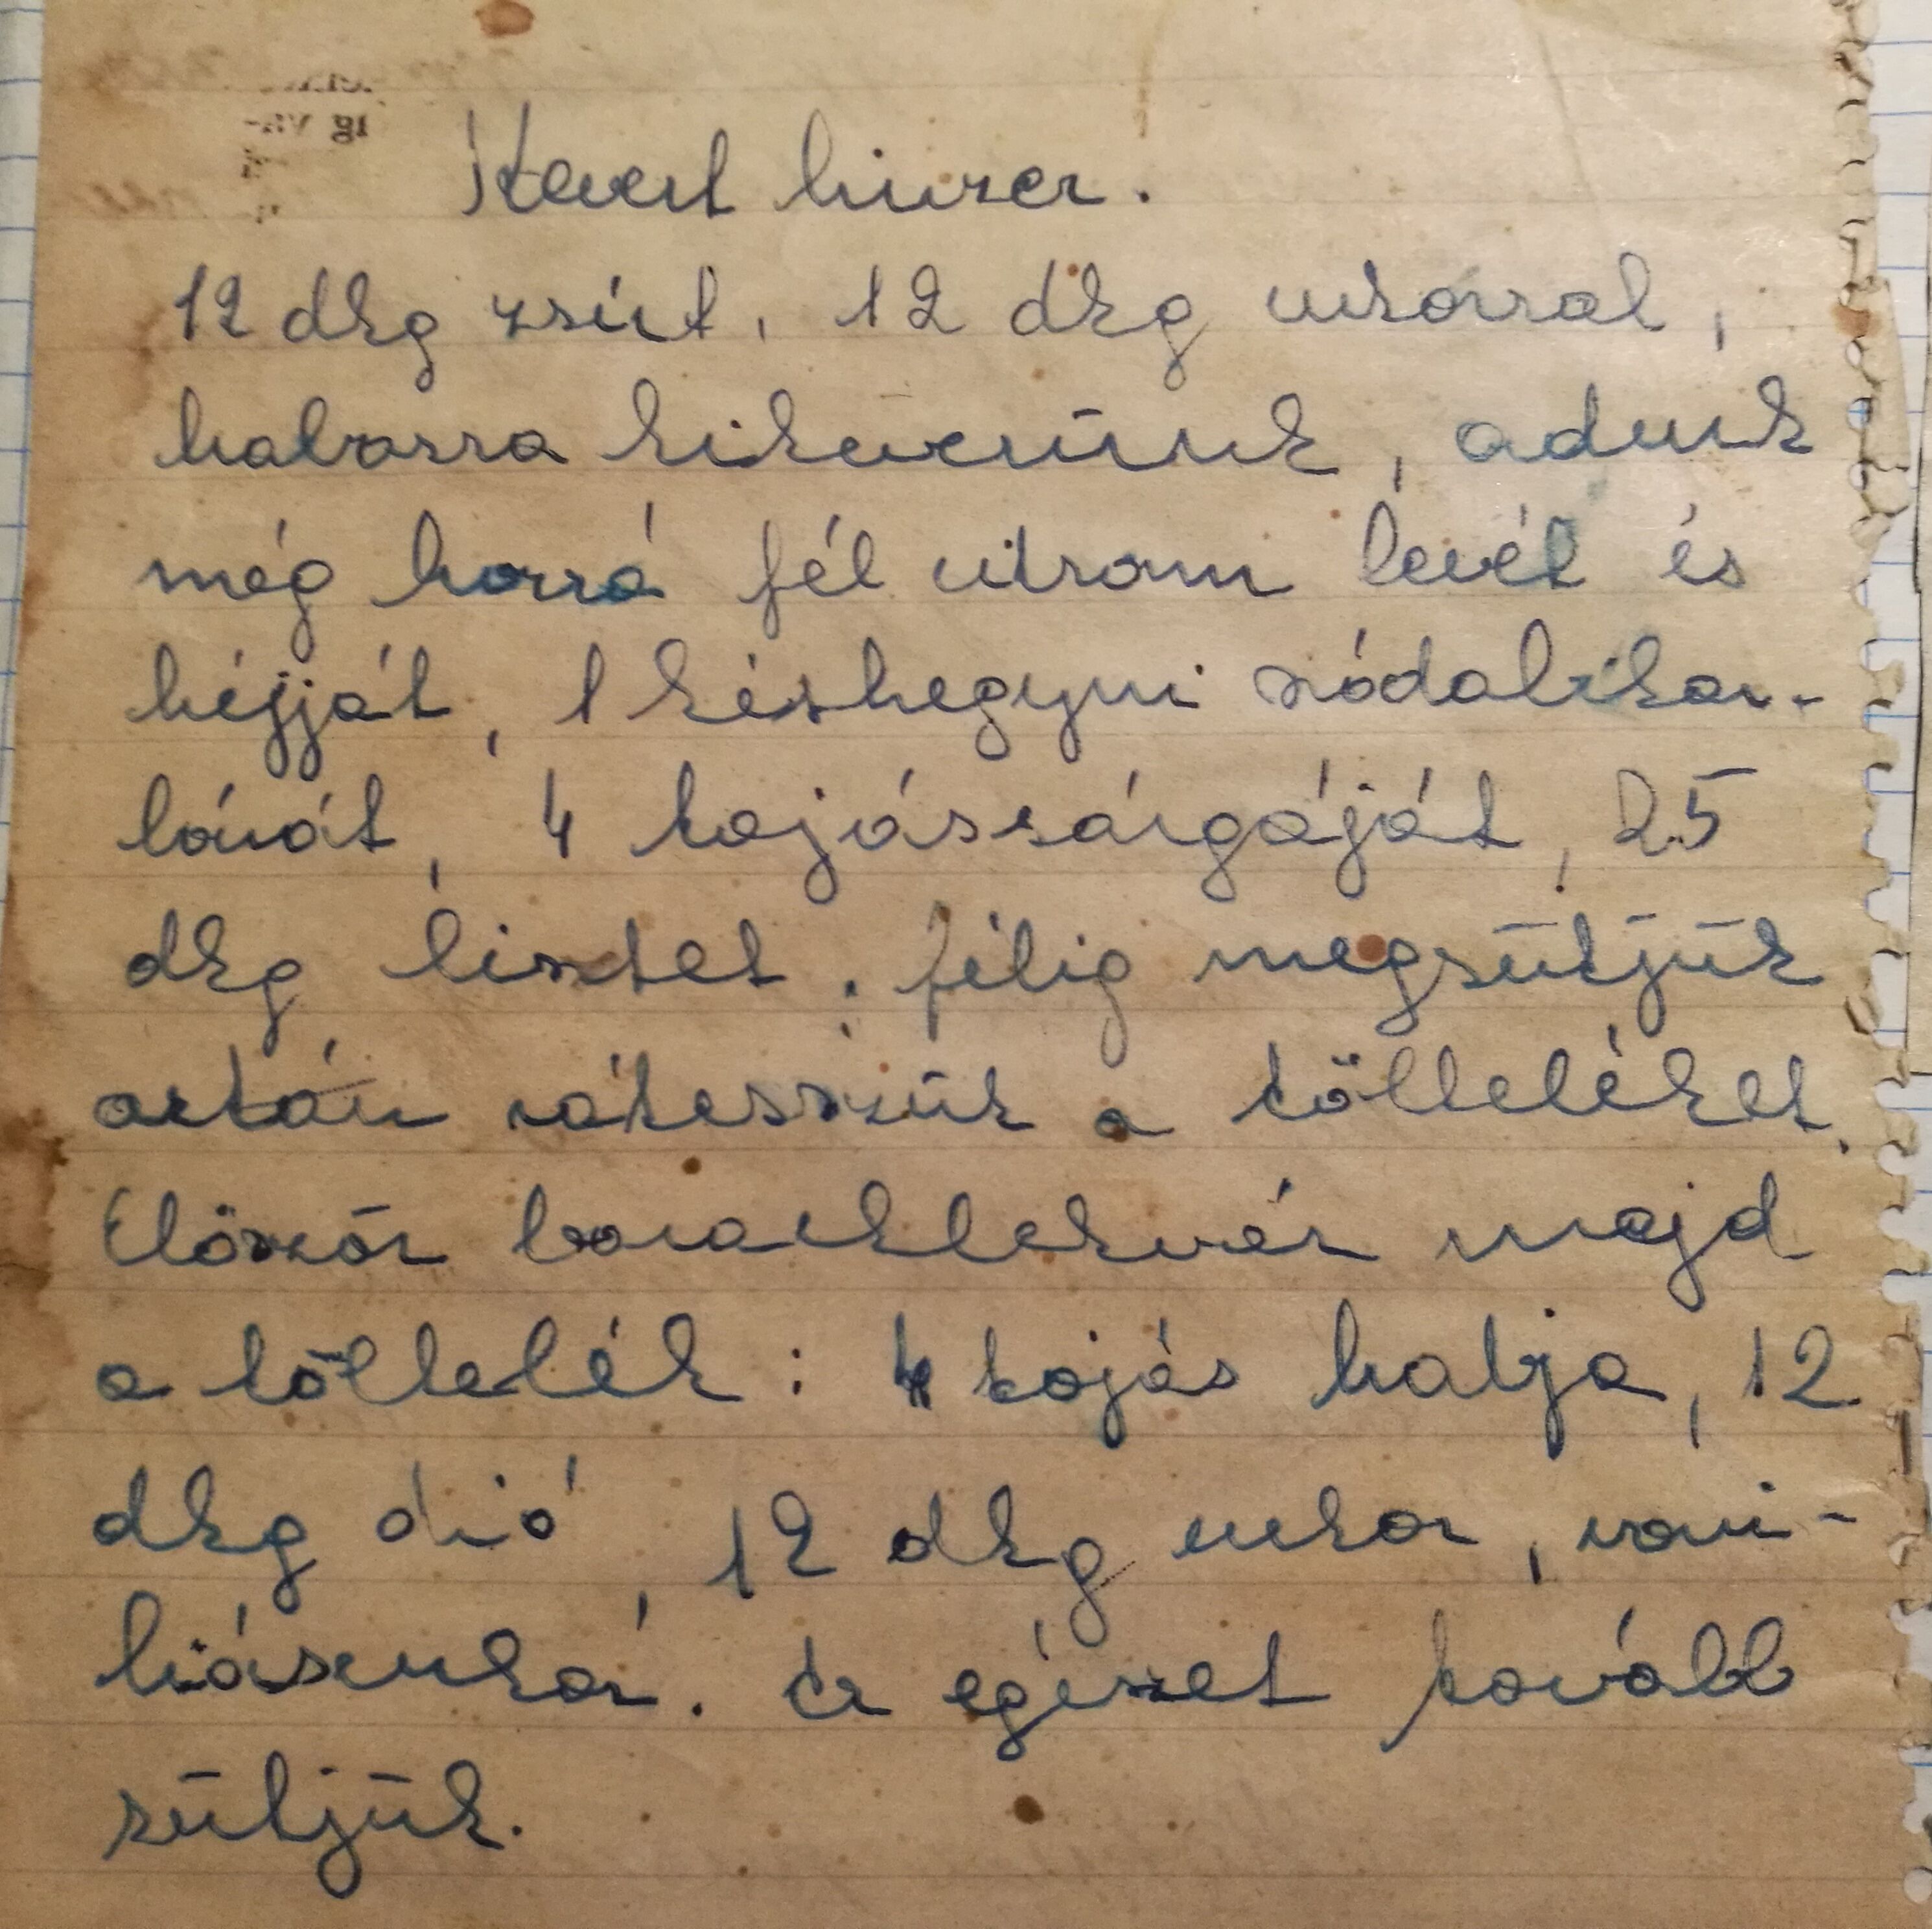 Kevert linzer.
12 dkg zsírt, 12 dkg cukorral,
habosra kikeverünk, adunk
még hozzá fél citrom levét és
héjját, 1 késhegyni szódabikar-
bónát, 4 tojássárgáját, 25
dkg lisztet; félig megsütjük
aztán rátesszük a tölteléket.
Először baracklekvár majd
a töltelék: 4 tojás habja, 12
dkg dió, 12 dkg cukor, vani-
liáscukor. Ez egészet tovább
sütjük.